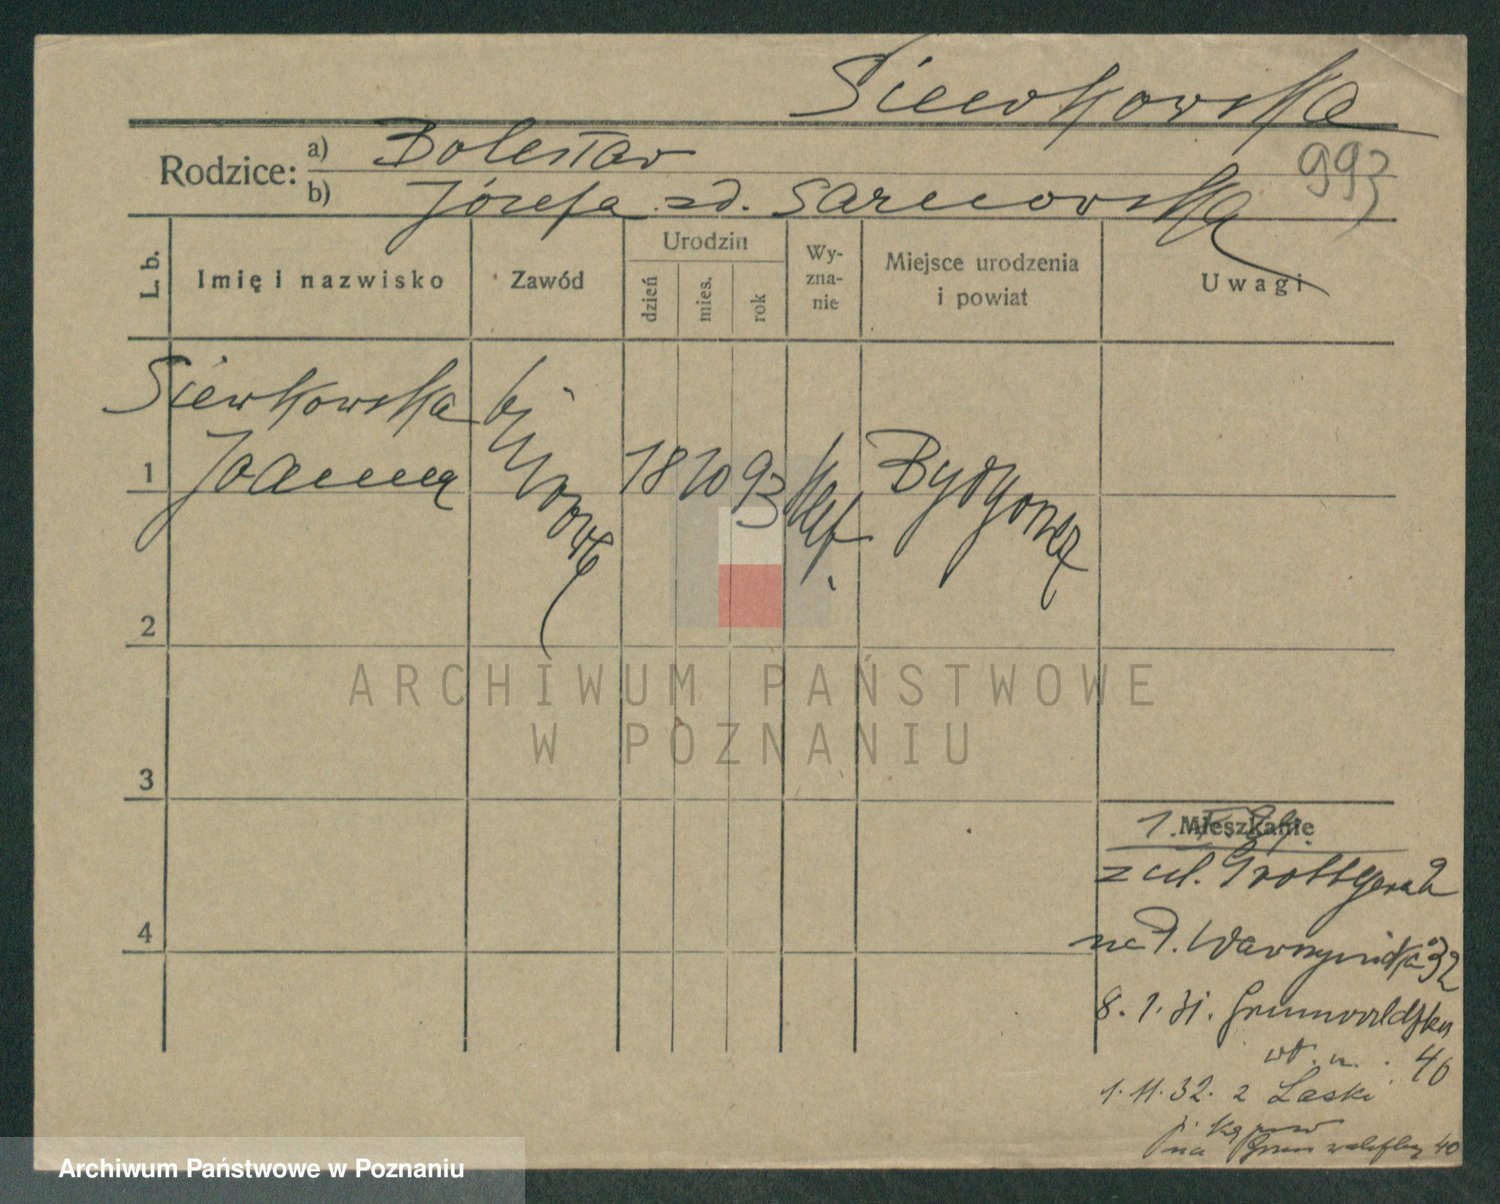 Siewkowska
Rodzice: a) Bolesław
b) Józefa zd. Sarnowska
993
L. b.
Imię i nazwisko
Zawód
Urodzin
dzień
mies.
rok
Wy-
zna-
nie
Miejsce urodzenia
i powiat
Uwagi
Siewkowska
1 Joanna 18 10 93 kat. Bydgoszcz
2
3
4
Mieszkanie
z ul. Grottgera 2
na
32
8. 1. 31. Grunwaldzka
40
1. 11. 32. z Laski
na Grunwaldzką 40
ARCHIWUM PAŃSTWOWE
W POZNANIU
Archiwum Państwowe w Poznaniu